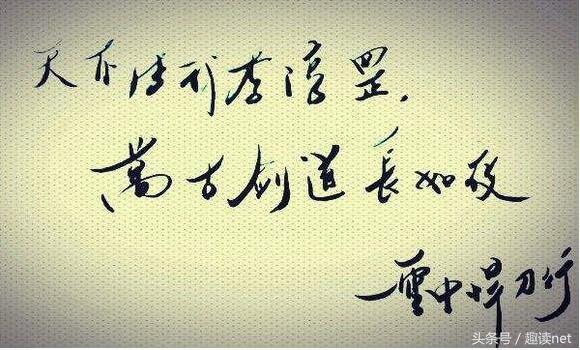 天不我李淳罡，
萬古剑道長如夜
雪中悍刀行
头条号 / 趣读net